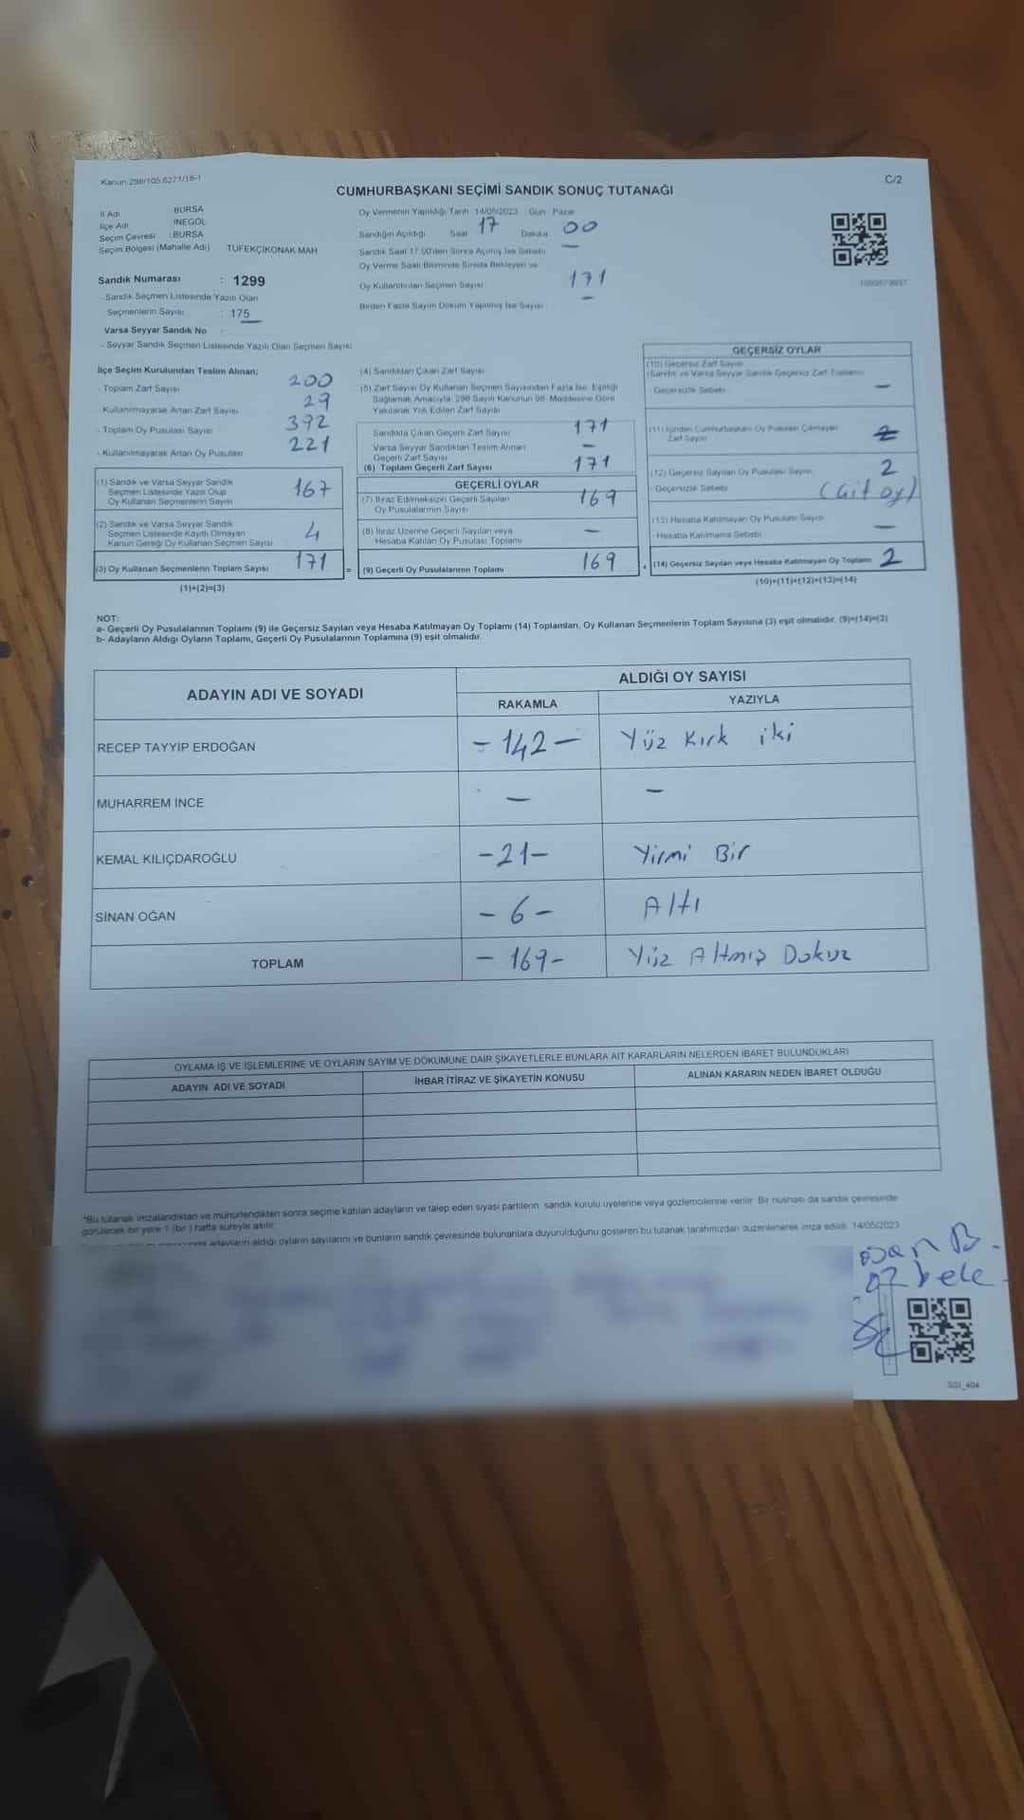 Kanun 298/105.6271/16-1
C/2
CUMHURBAŞKANI SEÇİMİ SANDIK SONUÇ TUTANAĞI
İl Adı BURSA
İlçe Adı İNEGÖL
Seçim Çevresi BURSA
Seçim Bölgesi (Mahalle Adı) TÜFEKÇİKONAK MAH
Sandık Numarası : 1299
- Sandık Seçmen Listesinde Yazılı Olan
Seçmenlerin Sayısı : 175
Varsa Seyyar Sandık No
- Seyyar Sandık Seçmen Listesinde Yazılı Olan Seçmen Sayısı
Oy Vermenin Yapıldığı Tarih 14/05/2023 Gün Pazar
Sandığın Açıldığı Saat 17 Dakika 00
Sandık Saat 17.00'den Sonra Açılmış İse Sebebi –
Oy Verme Saati Bitiminde Sırada Bekleyen ve
Oy Kullandırılan Seçmen Sayısı 171
Birden Fazla Sayım Döküm Yapılmış İse Sayısı –
İlçe Seçim Kurulundan Teslim Alınan;
- Toplam Zarf Sayısı 200
- Kullanılmayarak Artan Zarf Sayısı 29
- Toplam Oy Pusulası Sayısı 392
- Kullanılmayarak Artan Oy Pusulası 221
(1) Sandık ve Varsa Seyyar Sandık
Seçmen Listesinde Yazılı Olup
Oy Kullanan Seçmenlerin Sayısı 167
(2) Sandık ve Varsa Seyyar Sandık
Seçmen Listesinde Kayıtlı Olmayan
Kanun Gereği Oy Kullanan Seçmen Sayısı 4
(3) Oy Kullanan Seçmenlerin Toplam Sayısı 171
(1)+(2)=(3)
(4) Sandıktan Çıkan Zarf Sayısı
(5) Zarf Sayısı Oy Kullanan Seçmen Sayısından Fazla İse, Eşitliği
Sağlamak Amacıyla, 298 Sayılı Kanunun 98. Maddesine Göre
Yakılarak Yok Edilen Zarf Sayısı
Sandıkta Çıkan Geçerli Zarf Sayısı 171
Varsa Seyyar Sandıktan Teslim Alınan
Geçerli Zarf Sayısı –
(6) Toplam Geçerli Zarf Sayısı 171
GEÇERLİ OYLAR
(7) İtiraz Edilmeksizin Geçerli Sayılan
Oy Pusulalarının Sayısı 169
(8) İtiraz Üzerine Geçerli Sayılan veya
Hesaba Katılan Oy Pusulası Toplamı –
= (9) Geçerli Oy Pusulalarının Toplamı 169
GEÇERSİZ OYLAR
(10) Geçersiz Zarf Sayısı
(Sandık ve Varsa Seyyar Sandık Geçersiz Zarf Toplamı)
- Geçersizlik Sebebi –
(11) İçinden Cumhurbaşkanı Oy Pusulası Çıkmayan
Zarf Sayısı
(12) Geçersiz Sayılan Oy Pusulası Sayısı 2
- Geçersizlik Sebebi
(13) Hesaba Katılmayan Oy Pusulası Sayısı –
- Hesaba Katılmama Sebebi
+ (14) Geçersiz Sayılan veya Hesaba Katılmayan Oy Toplamı 2
(10)+(11)+(12)+(13)=(14)
NOT:
a- Geçerli Oy Pusulalarının Toplamı (9) ile Geçersiz Sayılan veya Hesaba Katılmayan Oy Toplamı (14) Toplamları, Oy Kullanan Seçmenlerin Toplam Sayısına (3) eşit olmalıdır. (9)+(14)=(3)
b- Adayların Aldığı Oyların Toplamı, Geçerli Oy Pusulalarının Toplamına (9) eşit olmalıdır.
ADAYIN ADI VE SOYADI
ALDIĞI OY SAYISI
RAKAMLA YAZIYLA
RECEP TAYYİP ERDOĞAN – 142 – Yüz Kırk iki
MUHARREM İNCE – –
KEMAL KILIÇDAROĞLU – 21 – Yirmi Bir
SİNAN OĞAN – 6 – Altı
TOPLAM – 169 – Yüz Altmış Dokuz
OYLAMA İŞ VE İŞLEMLERİNE VE OYLARIN SAYIM VE DÖKÜMÜNE DAİR ŞİKAYETLERLE BUNLARA AİT KARARLARIN NELERDEN İBARET BULUNDUKLARI
ADAYIN ADI VE SOYADI İHBAR İTİRAZ VE ŞİKAYETİN KONUSU ALINAN KARARIN NEDEN İBARET OLDUĞU
*Bu tutanak imzalandıktan ve mühürlendikten sonra seçime katılan adayların ve talep eden siyasi partilerin sandık kurulu üyelerine veya gözlemcilerine verilir. Bir nüshası da sandık çevresinde
görülecek bir yere 1 (bir) hafta süreyle asılır.
adayların aldığı oyların sayılarını ve bunların sandık çevresinde bulunanlara duyurulduğunu gösteren bu tutanak tarafımızdan düzenlenerek imza edildi. 14/05/2023